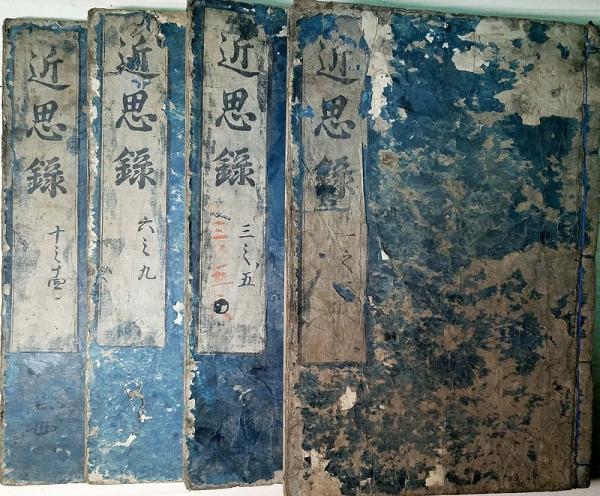 近思錄
一之
近思錄
三之五
三五
近思錄
六之九
近思錄
十之